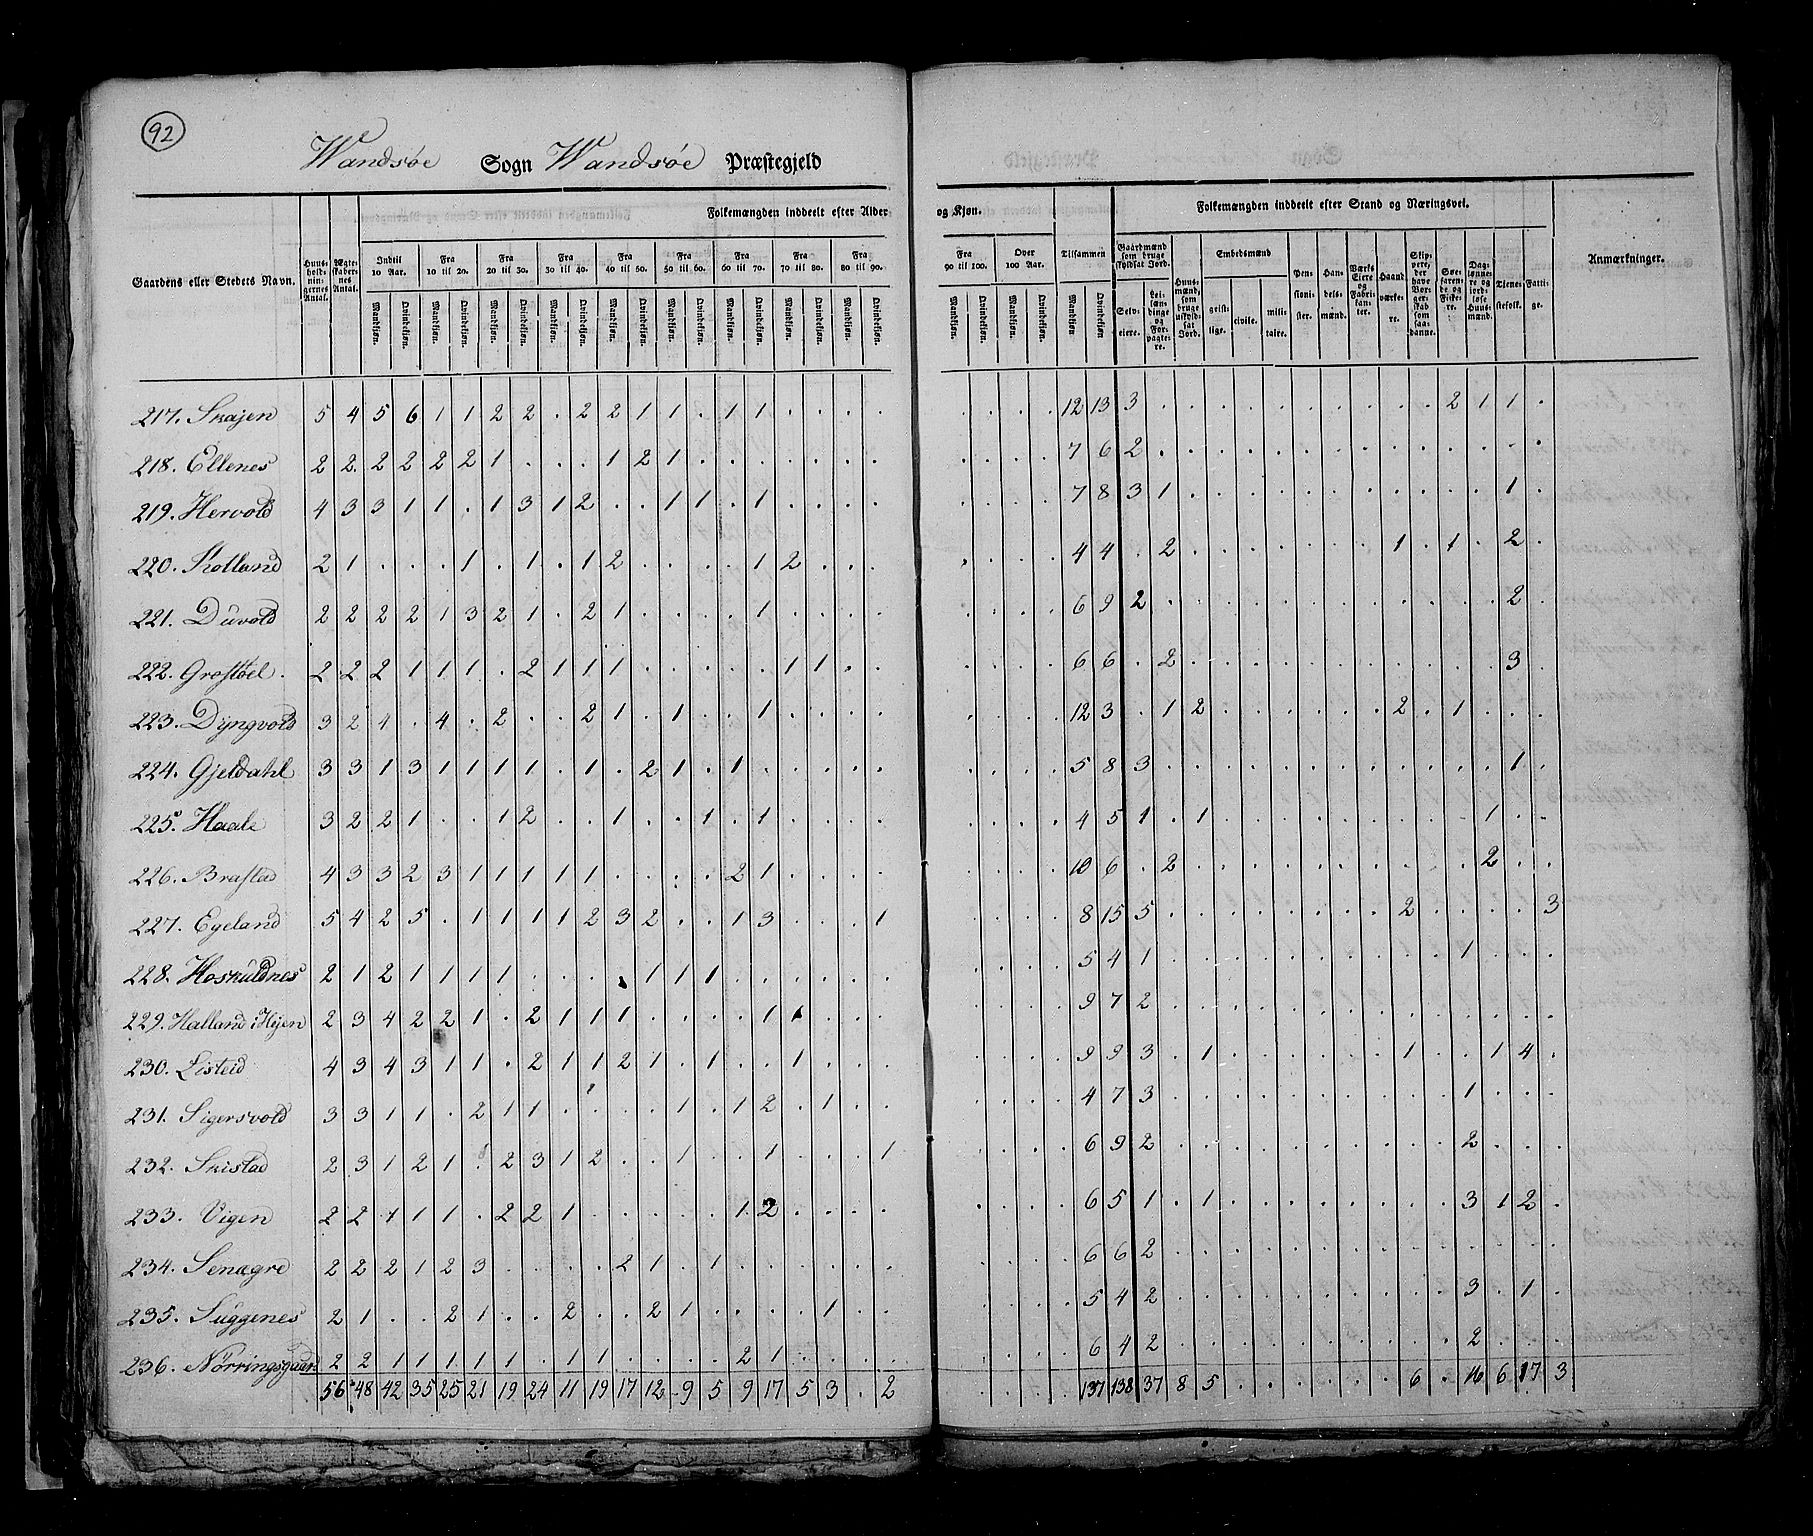 92
Wandsöe Sogn Wandsöe Præstegjeld
Folkemængden inddeelt efter Alder og Kjøn.
Folkemængden inddeelt efter Stand og Næringsvei.
Gaardens eller Stedets Navn. Huus-holdnin-gernes Antal. Ægte-skaber-nes Antal. Indtil 10 Aar. Fra 10 til 20. Fra 20 til 30. Fra 30 til 40. Fra 40 til 50. Fra 50 til 60. Fra 60 til 70. Fra 70 til 80. Fra 80 til 90. Fra 90 til 100. Over 100 Aar. Tilsammen Gaardmænd som bruge skyldsat Jord. Huus-mænd, som bruge uskyld-sat Jord. Embedsmænd Pen-sioni-ster. Han-dels-mænd. Værks Eiere og Fabrikan-ter. Haand-værke-re. Skip-pere, der have Bor-ger-skab som saa-danne. Søe-farende og Fiske-re. Dag-lønne-re og jord-løse Huus-mænd. Tjene-stefolk. Fatti-ge. Anmærkninger.
Mandkjøn. Qvindekjøn. Mandkjøn. Qvindekjøn. Mandkjøn. Qvindekjøn. Mandkjøn. Qvindekjøn. Mandkjøn. Qvindekjøn. Mandkjøn. Qvindekjøn. Mandkjøn. Qvindekjøn. Mandkjøn. Qvindekjøn. Mandkjøn. Qvindekjøn. Mandkjøn. Qvindekjøn. Mandkjøn. Qvindekjøn. Mandkjøn Qvindekjøn. Selv-eiere. Lei-lændinge og For-pagte-re. geist-lige. civile. mili-taire.
217. Skajen 5 4 5 6 1 1 2 2 . 2 2 1 1 . 1 1 . . . . . . . . 12 13 3 . . . . . . . . . . 2 1 1 .
218. Ellenes 2 2 2 2 2 2 1 . . . 1 2 1 . . . . . . . . . . . 7 6 2 . . . . . . . . . . . . . .
219. Hervold 4 3 3 1 1 . 1 3 1 2 . . 1 1 . 1 . . . . . . . . 7 8 3 1 . . . . . . . . . . . 1 .
220. Skolland 2 1 . . . 1 . 1 . 1 2 . . . . 1 2 . . . . . . . 4 4 . 2 . . . . . . . 1 . 1 . 2 .
221. Duvold 2 2 2 2 1 3 2 1 . 2 1 . . . . 1 . . . . . . . . 6 9 2 . . . . . . . . . . . . 2 .
222. Grostöel. 2 2 2 1 1 1 . 2 1 1 1 . . . . . 1 1 . . . . . . 6 6 . 2 . . . . . . . . . . . 3 .
223. Dyngvold 3 2 4 . 4 . 2 . . 2 1 . 1 . . 1 . . . . . . . . 12 3 . 1 2 . . . . . . 2 . 1 . . .
224. Gjeldahl 3 3 1 3 1 1 1 1 . 1 . 2 1 . 1 . . . . . . . . . 5 8 3 . . . . . . . . . . . . 1 .
225. Haale 3 2 2 1 . . 1 2 . . 1 . . 1 . 1 . . . . . . . . 4 5 1 . 1 . . . . . . . . . 1 . .
226. Brastad 4 3 3 2 3 1 1 1 1 1 . . . . 2 1 . . . . . . . . 10 6 . 2 . . . . . . . . . . 2 . .
227. Egeland 5 4 2 5 . 1 1 1 1 2 3 2 . . 1 3 . . . 1 . . . . 8 15 5 . . . . . . . . 2 . . . . 3
228. Hoskuldnes 2 1 2 1 1 1 1 . . . . 1 1 1 . . . . . . . . . . 5 4 1 . . . . . . . . . . 1 . . .
229. Halland i Hejen 2 3 4 2 2 1 . 2 1 1 1 . . . . 1 1 . . . . . . . 9 7 2 . . . . . . . . . . . . . .
230. Listeid 4 3 4 3 1 1 . 2 1 1 2 1 . 1 . . 1 . . . . . . . 9 9 3 . 1 . . . . . . 1 . . 1 4 .
231. Sigersvold 3 3 1 1 . 2 1 1 . . . . 1 . 1 2 . 1 . . . . . . 4 7 3 . . . . . . . . . . 1 . . .
232. Skistad 2 3 1 2 1 . 2 3 1 2 . . 1 . . 1 . . . 1 . . . . 6 9 2 . . . . . . . . . . 2 . . .
233. Vigen 2 2 1 1 1 . 2 2 1 . . . . . 1 2 . . . . . . . . 6 5 1 . 1 . . . . . . . . 3 1 2 .
234. Senagre 2 2 2 1 2 3 . . . . 2 1 . 1 . . . . . . . . . . 6 6 2 . . . . . . . . . . . . . .
235. Suggenes 2 1 . . 2 1 . . 2 . . 2 1 . . . . 1 . . . . . . 5 4 2 . . . . . . . . . . 3 . 1 .
236. Nørringsgaard 2 2 1 1 1 1 1 . 1 1 . . . . 2 1 . . . . . . . . 6 4 2 . . . . . . . . . . 2 . . .
56 48 42 35 25 21 19 24 11 19 17 12 9 5 9 17 5 3 . 2 . . . . 137 138 37 8 5 . . . . . . 6 . 16 6 17 3